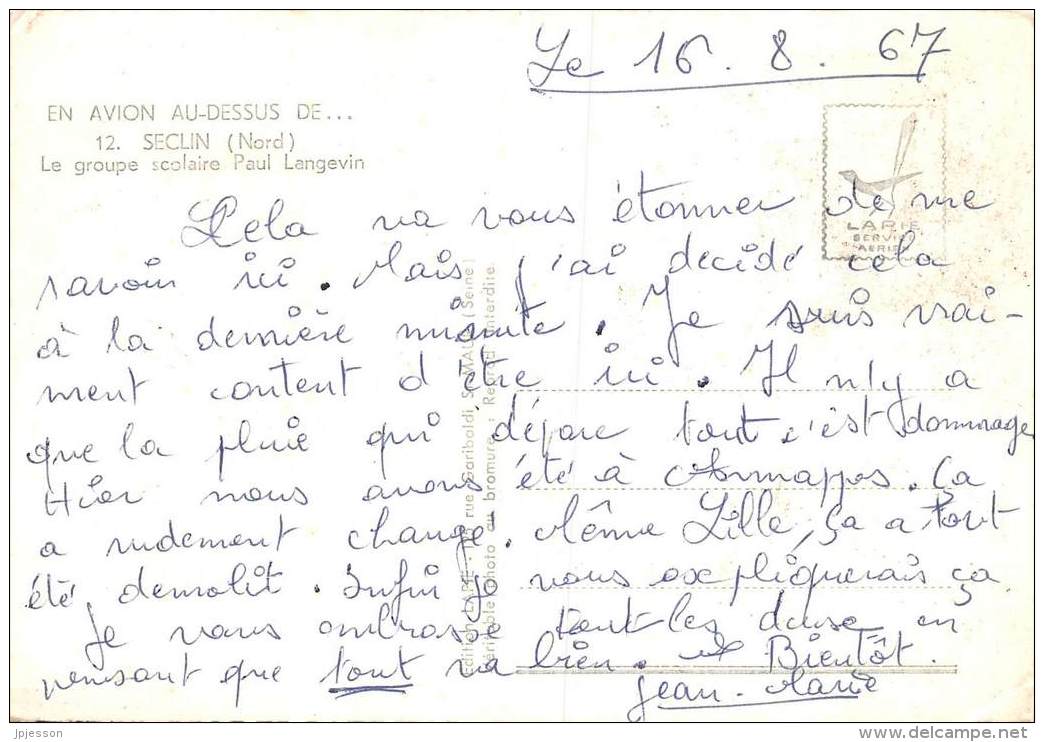 Le 16.8.67
EN AVION AU-DESSUS DE...
12. SECLIN (Nord)
Le groupe scolaire Paul Langevin
LAPIE
SERVICE
AERIEN
Cela va vous étonner de me
savoir ici. Mais j'ai decidé cela
à la dernière minute. Je suis vrai-
ment content d'être ici. Il n'y a
que la pluie qui dépare tout c'est dommage
Hier nous avons été à Annappes. Ça
a rudement changé. Même Lille, ça a tout
été demolit. Enfin je vous expliquerais ça
Je vous embrasse toutles deuse en
pensant que tout va bien. et Bientôt.
Jean-Marie
Edition LAPIE - rue Garibaldi, St-MAUR (Seine)
Véritable photo au bromure - Reprod. interdite
jpjesson
www.delcampe.net